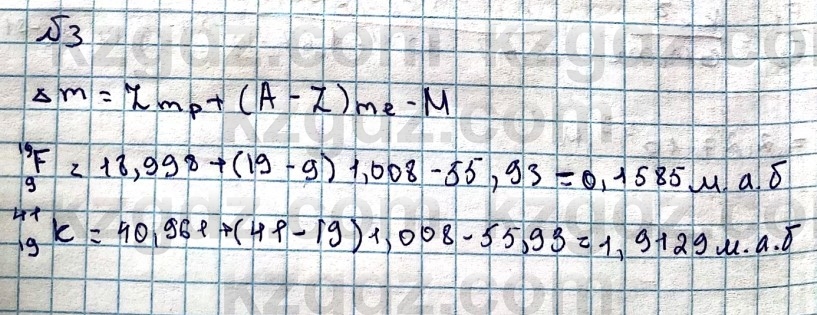 №3
Δm = Zmp + (A - Z)me - M
¹⁹₉F = 18,998 + (19 - 9) 1,008 - 55,93 = 0,1585 м.а.б
⁴¹₁₉K = 40,961 + (41 - 19) 1,008 - 55,93 = 1,9129 м.а.б